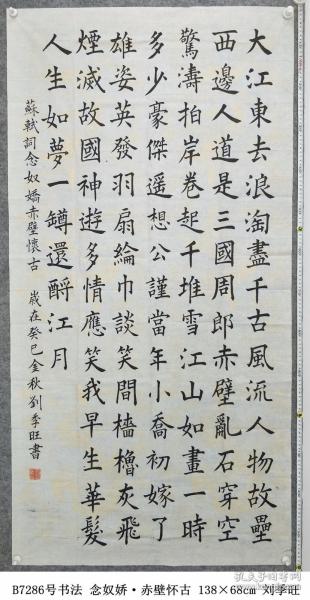 大江東去浪淘盡千古風流人物故壘
西邊人道是三國周郎赤壁亂石穿空
驚濤拍岸卷起千堆雪江山如畫一時
多少豪傑遥想公謹當年小喬初嫁了
雄姿英發羽扇綸巾談笑間檣櫓灰飛
煙滅故國神遊多情應笑我早生華髮
人生如夢一罇還酹江月
蘇軾詞念奴嬌赤壁懷古 歲在癸巳金秋劉季旺書
B7286号书法 念奴娇·赤壁怀古 138×68cm 刘季旺